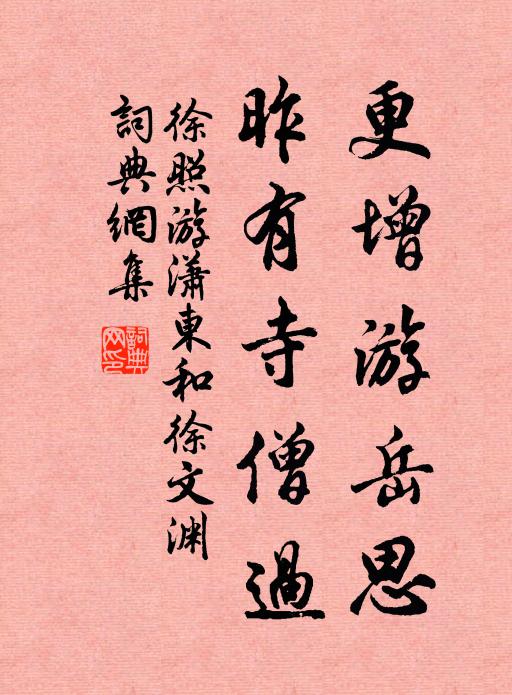 更增游岳思
昨有寺僧過
徐照游瀟東和徐文淵
詞典網集
詞典網印